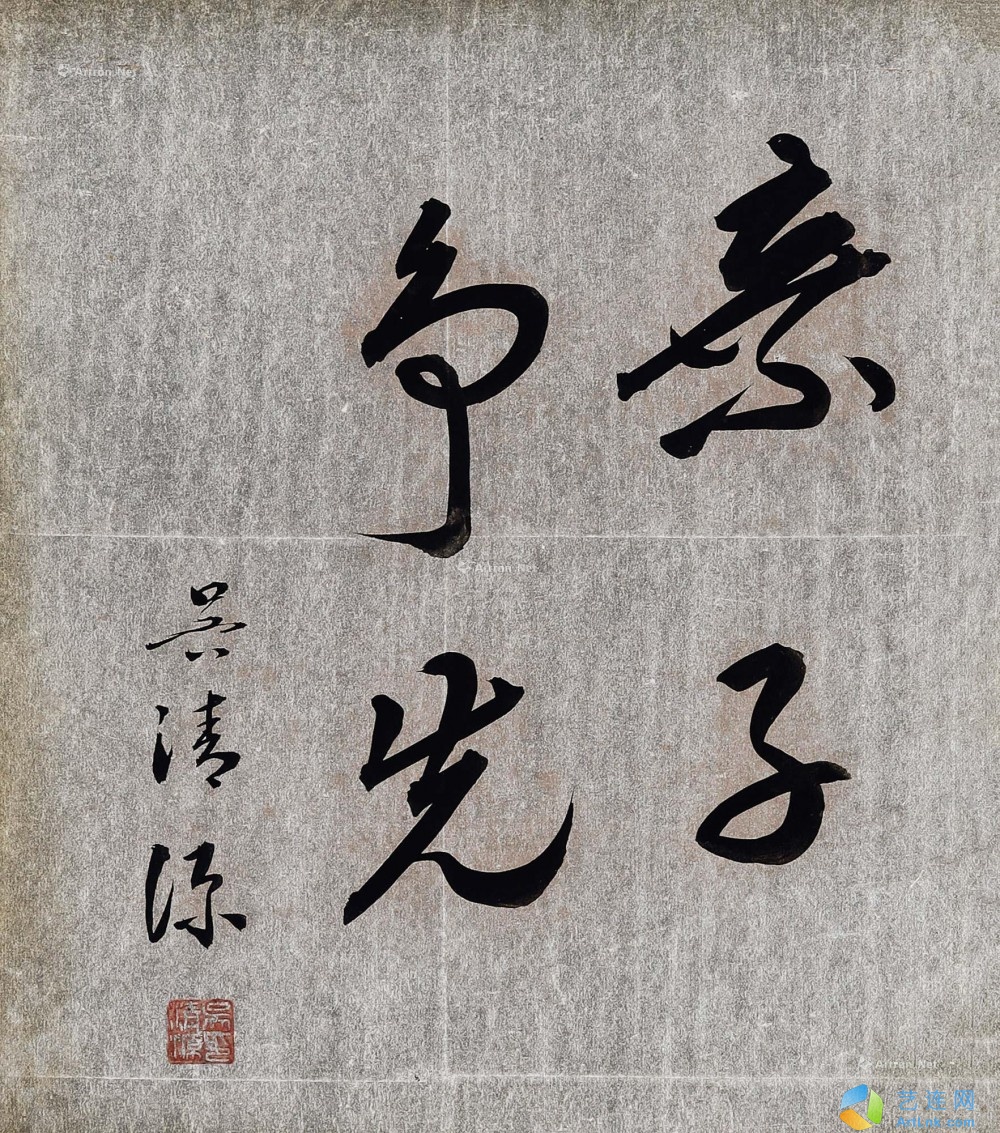 棄子
争先
吳清源
吳清源印
Artron.Net
Artron.Net
Artron.Net
艺连网